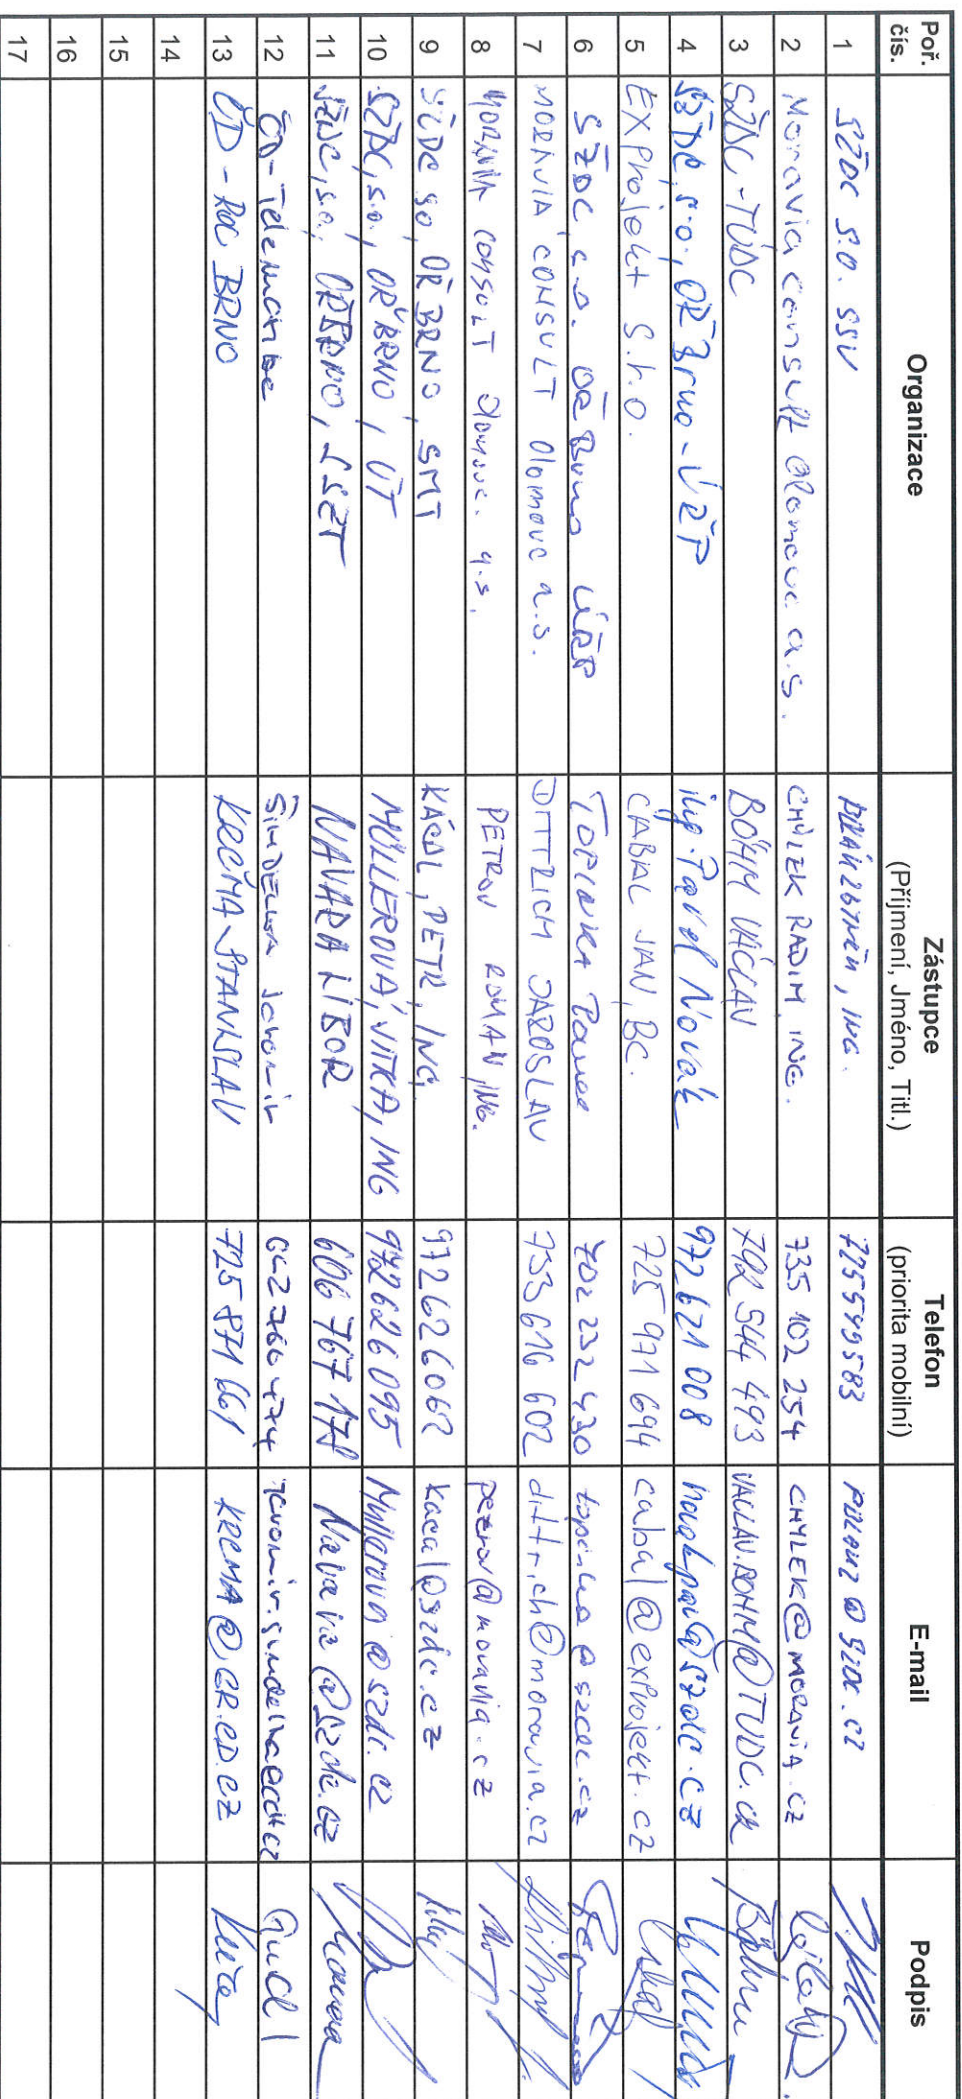 Poř. čís. Organizace Zástupce (Příjmení, Jméno, Titl.) Telefon (priorita mobilní) E-mail Podpis
1 SŽDC s.o. SSV , ING. 725599583
2 Moravia consult Olomouc a.s. CHÝLEK RADIM, ING. 735 102 254 CHYLEK@MORAVIA.CZ
3 SŽDC-TÚDC BÖHM VÁCLAV 702 544 493 VACLAV.BOHM@TUDC.CZ
4 SŽDC, s.o., OŘ Brno - ÚŘP ing. Pavel Novák 972 621 008 novakpav@szdc.cz
5 EXprojekt s.r.o. CABAL JAN, BC. 725 971 694 cabal@exprojekt.cz
6 SŽDC, s.o. OŘ Brno ÚŘP TOPINKA 702 232 430
7 MORAVIA CONSULT Olomouc a.s. DITTRICH JAROSLAV 733 616 602 dittrich@moravia.cz
8 MORAVIA CONSULT Olomouc a.s. PETROV ROMAN, ING. petrov@moravia.cz
9 SŽDC s.o, OŘ BRNO, SMT KÁCAL, PETR, ING. 972626062 kacal@szdc.cz
10 SŽDC, s.o., OŘ BRNO, ÚT MÜLLEROVÁ, VITKA, ING 972626095 Mullerova@szdc.cz
11 SŽDC, s.o., OŘ BRNO, SSZT NAVARA LIBOR 606 767 178 Navara@szdc.cz
12 ČD-Telematika Jaromír
13 ČD - BRNO KRČMA STANISLAV 725 871 661 KRCMA@GR.CD.CZ
14
15
16
17